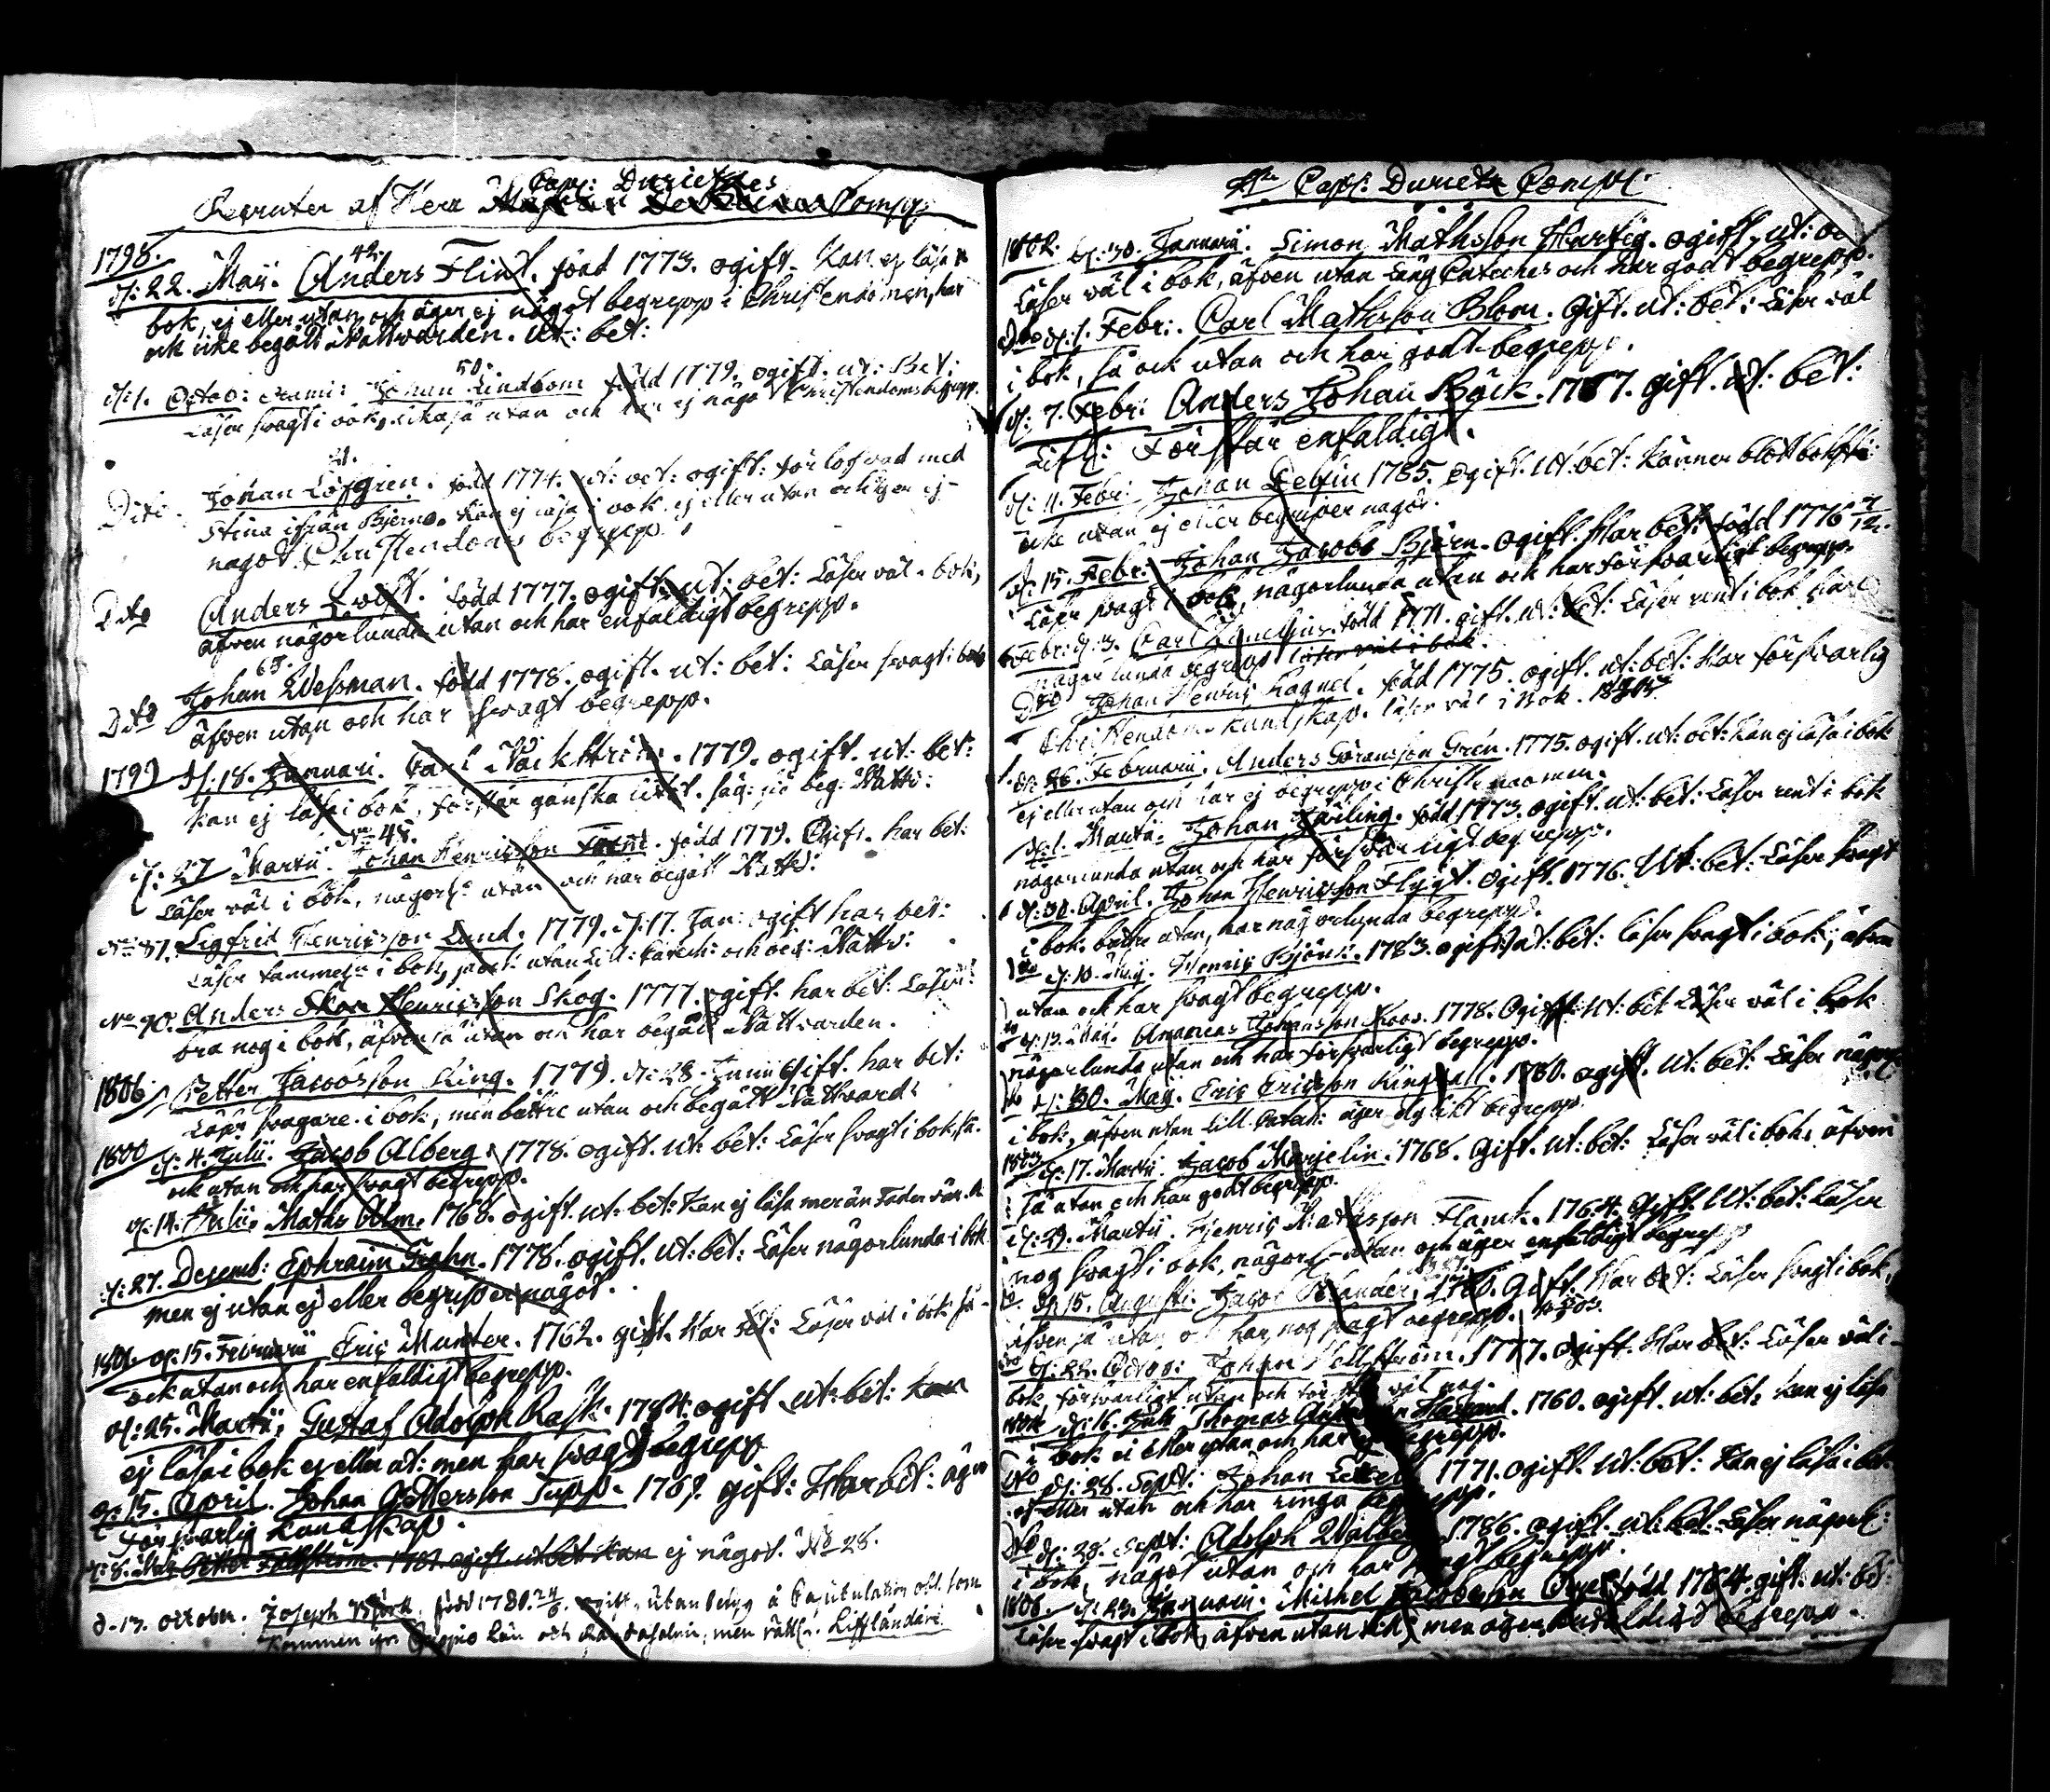 Capt: Durietzes
Recruter af Herr Comp:
1798.
42.
d: 22. Maii. Anders Flint. född 1773. ogift. Kan ej läsa i
bok, ej eller utan och äger ej något begrepp i Christendomen, har
och icke begått Nattvarden. ut: bet:
50.
d: 1. Octob: Johan Lindbom född 1779. ogift. ut: Bet:
Läser svagt i bok, likaså utan och har ej något Christendoms begrepp.
Dito. Johan Löfgren. född 1774. ut: bet: ogift: förlofvad med
Stina ifrån Bjerno. Kan ej läsa i bok ej eller utan och äger ej
något Christendoms begrepp.
Dito Anders Qvist. född 1777. ogift. ut: bet: Läser väl i bok,
äfven någorlunda utan och har enfaldigt begrepp.
63.
Dito Johan Wessman. född 1778. ogift. ut: bet: Läser svagt i bok
äfven utan och har svagt begrepp.
1799 d: 18. Januari. Carl 1779. ogift. ut: bet:
Kan ej läsa i bok, förstår ganska litet. beg: Nattv:
No 48.
d: 27 Martii Johan Henricsson född 1779. Ogift. har bet:
Läser väl i bok, någorl: utan och har begått Nattv:
No 37. Sigfrid Henricsson Lund. 1779. d: 17. Jan: ogift har bet:
Läser i bok, utan Lill: Catech: och beg: Nattv:
No 70. Anders Skog Henricsson Skog. 1777. ogift. har bet: Läser
bra nog i bok, äfven så utan och har begått Nattvarden.
1806 Petter Jacobsson Ring. 1779. d: 28. Junii Gift. har bet:
Läser svagare i bok, men bättre utan och begått Nattvard:
1800 d: 4. Julii. Jacob Alberg. 1778. ogift. ut: bet: Läser svagt i bok, så
ock utan och har svagt begrepp.
d: 14. Julii. Maths Alm. 1768. ogift. ut: bet: Kan ej läsa mer än Fader vår
d: 27. Decemb: Ephraim Grahn. 1778. ogift. ut: bet: Läser någorlunda i bok
men ej utan ej eller begriper något.
1801. d: 15. Februarii Eric Munter. 1762. gift. Har bet: Läser väl i bok så
ock utan och har enfaldigt begrepp.
d: 25. Martii, Gustaf Adolph Rask. 1784. ogift ut: bet: kan
ej läsa i bok ej eller ut: men har svagt begrepp
d: 15. April. Johan Pettersson Tupp. 1769. gift: Har bet: äger
Försvarlig Kundskap.
ogift ut bet kan ej något. No 28.
d. 13. October. Joseph Björk, född 1780. 24/6. ogift, utan betyg å Capitulation som
kommen från Cuopio Län och men rättl. Lifländare.
Hr: Capt: Durietz Comp:
1802. d: 30. Januarii. Simon Mathsson Hurtig. ogift. ut:
Läser väl i bok, äfven utan Lång Cateches och har godt begrepp.
Dito d: 1. Febr: Carl Mathsson Blom. Gift. ut: bet: Läser väl
i bok, så ock utan och har godt begrepp.
d: 7. Febr: Anders Johan Bäck. 1767. gift. ut: bet:
Förstår enfaldigt.
d: 11. Febr: Johan Delfin 1785. ogift. ut: bet: Känner blott bokst:
icke utan ej eller begriper något.
d: 15. Febr: Johan Jacobs Björn. ogift. Har bet: född 1776 7/12.
Läser svagt i bok, någorlunda utan och har försvarligt begrepp.
Febr: d: 3. Carl född 1771. gift. ut: bet: Läser rent i bok har
någorlunda begrepp läser väl i bok.
Dito Johan Henric Kagnel. född 1775. ogift. ut: bet: Har försvarlig
Christendoms kundskap. läser väl i Bok.
d: 26. Februarii. Anders Göransson Grén. 1775. ogift. ut: bet: Kan ej läsa i bok
ej eller utan och har ej begrepp i Christendomen.
d: 1. Martii. Johan Järling. född 1773. ogift. ut: bet: Läser rent i bok
någorlunda utan och har försvarligt begrepp.
d: 30. April. Johan Henricsson Flygt. Ogift. 1776. Ut: bet: Läser svagt
i bok bättre utan, har någorlunda begrepp.
d: 10. Maij. Henric Björn. 1783. ogift. ut: bet: läser svagt i bok, äfven
utan och har svagt begrepp.
d: 13. Maij. Ananias Johansson 1778. Ogift. ut: bet Läser väl i bok
någorlunda utan och har försvarligt begrepp.
d: 30. Maij. Eric Ericsson Ringvall. 1780. ogift. ut: bet: Läser någorl
i bok, äfven utan Lill: Catech: äger begrepp.
1803 d: 17. Martii. Jacob Marjelin. 1768. gift. ut: bet: Läser väl i bok, äfven
så utan och har godt begrepp.
d: 29. Martii. Henric Mathsson Flanck. 1764. Gift Ut: bet: Läser
nog svagt i bok, någorl: utan och äger enfaldigt begrepp
d: 15. Augusti. Jacob 1780. Gift. Har bet: Läser svagt i bok,
äfven så utan och har nog svagt begrepp.
d: 22. Octob: Johan Hellström. 1777. ogift. Har bet: Läser väl i
bok, försvarligt utan och förstår väl nog.
1804 d: 16. Thomas 1760. ogift. ut: bet: kan ej läsa
i bok ej eller utan och har ej begrepp.
Dito d: 28. Sept: Johan 1771. ogift. ut: bet: Kan ej läsa i bok
ej eller utan och har ringa begrepp.
Dito d: 28. Sept: Adolph 1786. ogift. ut: bet: Läser någorl:
i bok, något utan och har svagt begrepp.
1806. d: 23. Januarii. Michel Jacobsson född 1784. gift. ut: bet:
Läser svagt i bok, äfven utan men äger enfaldigt begrepp.